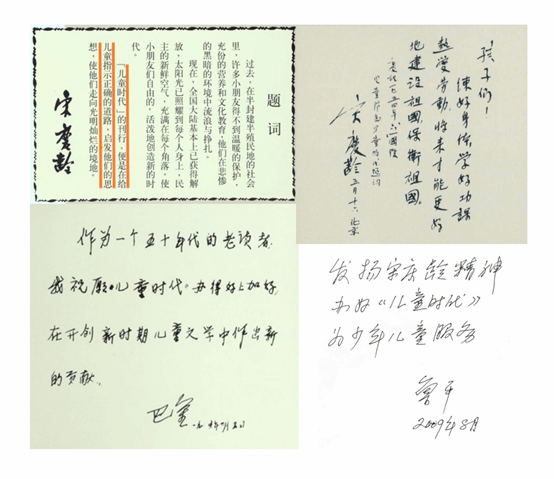 题词
过去，在半封建半殖民地的社会
里，许多小朋友得不到温暖的保护，
充份的营养和文化教育，他们在悲惨
的黑暗的环境中流浪与挣扎。
现在，全国大陆基本上已获得解
放，太阳光已照耀到每个人身上，民
主的新鲜空气，充满在每个角落，使
小朋友们自由的，活泼地创造新的时
代。
「儿童时代」的刊行，便是在给
儿童指示正确的道路，启发他们的思
想，使他们走向光明灿烂的境地。
宋庆龄
孩子们！
练好身体，学好功课
热爱劳动，将来才能更好
地建设祖国，保卫祖国。
宋庆龄
五月十六 北京
作为一个五十年代的老读者，
我祝愿《儿童时代》办得好上加好，
在开创新时期儿童文学中作出新
的贡献。
巴金
发扬宋庆龄精神
办好《儿童时代》
为少年儿童服务
鲁平
2009年8月